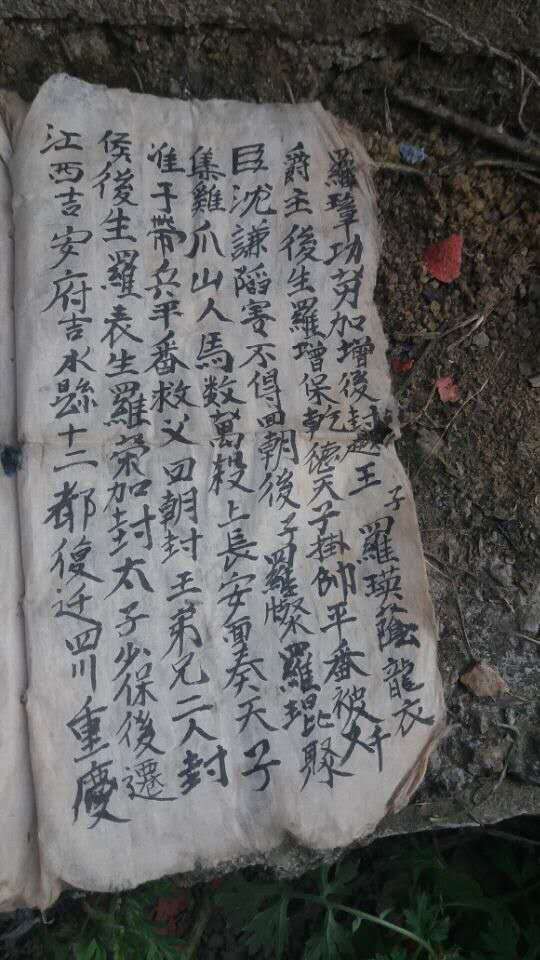 羅璋功勞加增後封越王子羅瑛蔭龍衣
爵主後生羅增保乾德天子掛帥平番被奸
臣沈謙謟害不得回朝後子羅燦羅琨聚
集雞爪山人馬数萬殺上長安面奏天子
准子帶兵平番救父回朝封王弟兄二人封
侯後生羅表生羅榮加封太子少保後遷
江西吉安府吉水縣十二都復迁四川重慶